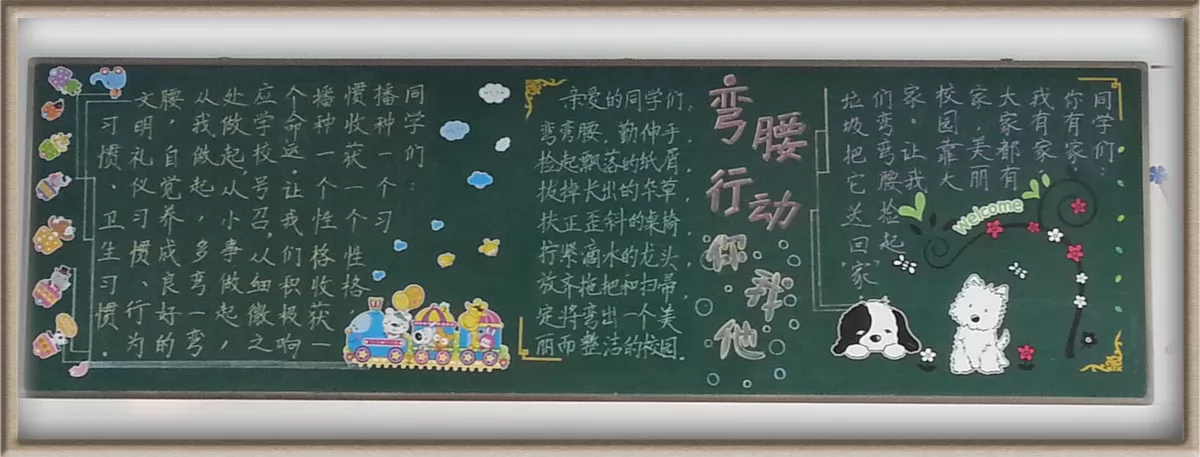 同学们：
播种一个习
惯收获一个性格
播种一个性格收获一
个命运。让我们积极响
应学校号召，从细微之
处做起，从小事做起，
从我做起，多弯一弯
腰，自觉养成良好的
文明礼仪习惯、行为
习惯、卫生习惯。
亲爱的同学们：
弯弯腰，勤伸手，
捡起飘落的纸屑，
拔掉长出的杂草，
扶正歪斜的桌椅，
拧紧滴水的龙头，
放齐拖把和扫帚，
定将弯出一个美
丽而整洁的校园。
弯腰
行动
你我他
同学们：
你有家，
我有家，
大家都有
家，美丽
校园靠大
家。让我
们弯弯腰捡起
垃圾把它送回“家”
welcome